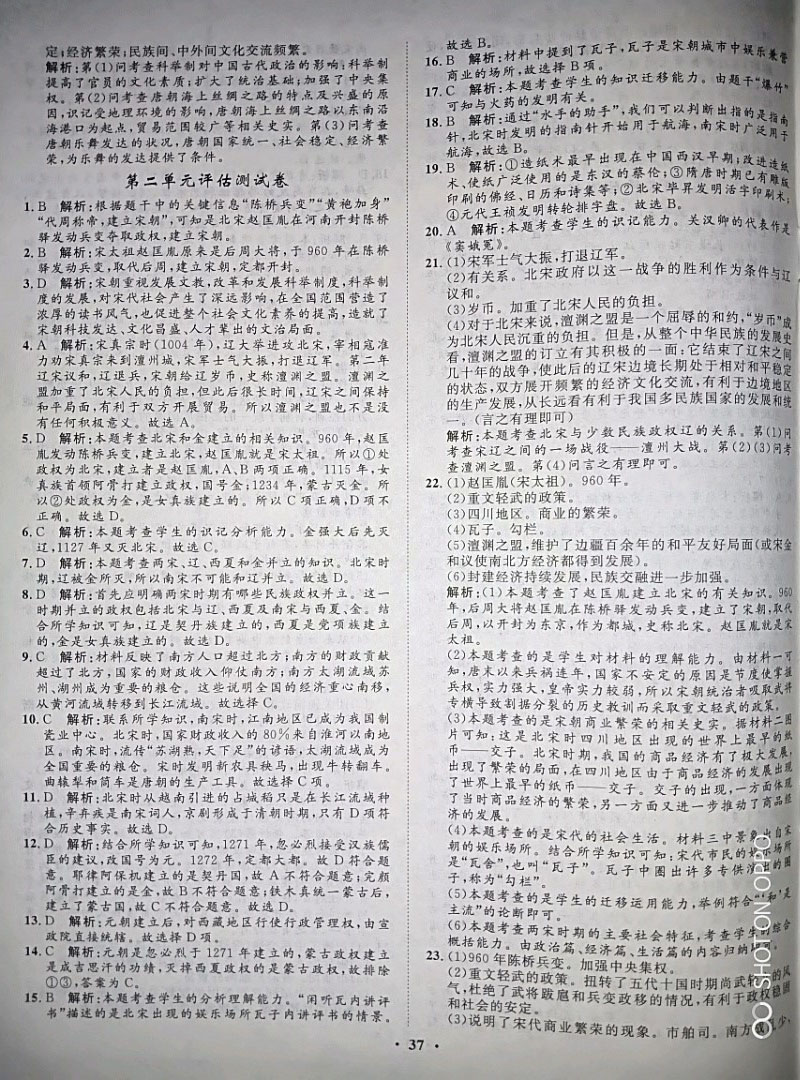 定;经济繁荣;民族间、中外间文化交流频繁。
解析:第(1)问考查科举制对中国古代政治的影响;科举制
提高了官员的文化素质;扩大了统治基础;加强了中央集
权。第(2)问考查唐朝海上丝绸之路的特点及兴盛的原
因,识记受地理环境的影响,唐朝海上丝绸之路以东南沿
海港口为起点,贸易范围较广等相关史实。第(3)问考查
唐朝乐舞发达的状况,唐朝国家统一、社会稳定、经济繁
荣,为乐舞的发达提供了条件。
第二单元评估测试卷
1. B 解析:根据题干中的关键信息“陈桥兵变”“黄袍加身”
“代周称帝,建立宋朝”,可知是北宋赵匡胤在河南开封陈桥
驿发动兵变夺取政权,建立宋朝。
2. B 解析:宋太祖赵匡胤原来是后周大将,于 960 年在陈桥
驿发动兵变,取代后周,建立宋朝,定都开封。
3. D 解析:宋朝重视发展文教,改革和发展科举制度,科举制
度的发展,对宋代社会产生了深远影响,在全国范围营造了
浓厚的读书风气,也促进整个社会文化素养的提高,造就了
宋朝科技发达、文化昌盛、人才辈出的文治局面。
4. A 解析:宋真宗时(1004 年),辽大举进攻北宋,宰相寇准
力劝宋真宗来到澶州城,宋军士气大振,打退辽军。第二年
辽宋议和,辽退兵,宋朝给辽岁币,史称澶渊之盟。澶渊之
盟加重了北宋人民的负担,但此后很长时间,辽宋之间保持
和平局面,有利于双方开展贸易。所以澶渊之盟也不是没
有任何积极意义。故选 A。
5. D 解析:本题考查北宋和金建立的相关知识。960 年,赵匡
胤发动陈桥兵变,建立北宋,赵匡胤就是宋太祖。所以①处
政权为北宋,建立者是赵匡胤,A、B 两项正确。1115 年,女
真族首领阿骨打建立政权,国号金;1234 年,蒙古灭金。所
以②处政权为金,是女真族建立的。所以 C 项正确,D 项不
正确。故选 D。
6. C 解析:本题考查学生的识记分析能力。金强大后先灭
辽,1127 年又灭北宋。故选 C。
7. D 解析:本题考查两宋、辽、西夏和金并立的知识。北宋时
期,辽被金所灭,所以南宋不可能和辽并立。故选 D。
8. D 解析:首先应明确两宋时期有哪些民族政权并立。这一
时期并立的政权包括北宋与辽、西夏及南宋与西夏、金。结
合所学知识可知,辽是契丹族建立的,西夏是党项族建立
的,金是女真族建立的。故选 D。
9. C 解析:材料反映了南方人口超过北方;南方的财政贡献
超过了北方,国家的财政收入仰仗南方;南方太湖流域苏
州、湖州成为重要的粮仓。这些说明全国的经济重心南移,
从黄河流域转移到长江流域。故选择 C。
10. C 解析:联系所学知识,南宋时,江南地区已成为我国制
瓷业中心。北宋时,国家财政收入的 80%来自淮河以南地
区。南宋时,流传“苏湖熟,天下足”的谚语,太湖流域成为
全国重要的粮仓。宋时发明新农具秧马,出现牛转翻车。
曲辕犁和筒车是唐朝的生产工具。故选择 C 项。
11. D 解析:北宋时从越南引进的占城稻只是在长江流域种
植,辛弃疾是南宋词人,京剧形成于清朝时期,只有 D 项符
合历史事实。故选 D。
12. D 解析:结合所学知识可知,1271 年,忽必烈接受汉族儒
臣的建议,改国号为元。1272 年,定都大都。故 D 符合题
意。耶律阿保机建立的是契丹国,故 A 不符合题意;完颜
阿骨打建立的是金,故 B 不符合题意;铁木真统一蒙古后,
建立了蒙古国,故 C 不符合题意。故选 D。
13. D 解析:元朝建立后,对西藏地区行使行政管理权,由宣
政院直接统辖。故选择 D 项。
14. C 解析:元朝是忽必烈于 1271 年建立的,蒙古政权建立
是成吉思汗的功绩,灭掉西夏政权的是蒙古政权,故排除
①③,答案为 C。
15. B 解析:本题考查学生的分析理解能力。“闲听瓦内讲评
书”描述的是北宋出现的娱乐场所瓦子内讲评书的情景。
故选 B。
16. B 解析:材料中提到了瓦子,瓦子是宋朝城市中娱乐兼营
商业的场所,故选择 B 项。
17. C 解析:本题考查学生的知识迁移能力。由题干“爆竹”
可知与火药的发明有关。
18. B 解析:通过“水手的助手”,我们可以判断出指的是指南
针,北宋时发明的指南针开始用于航海,南宋时广泛用于
航海,故选 B。
19. B 解析:①造纸术最早出现在中国西汉早期;改进造纸
术、使纸广泛使用的是东汉的蔡伦;③隋唐时期已有雕版
印刷的佛经、日历和诗集等;②北宋毕昇发明活字印刷术;
④元代王祯发明转轮排字盘。故选 B。
20. A 解析:本题考查学生的识记能力。关汉卿的代表作是
《窦娥冤》。
21. (1)宋军士气大振,打退辽军。
(2)有关系。北宋政府以这一战争的胜利作为条件与辽
议和。
(3)岁币。加重了北宋人民的负担。
(4)对于北宋来说,澶渊之盟是一个屈辱的和约,“岁币”成
为北宋人民沉重的负担。但是,从整个中华民族的发展史
看,澶渊之盟的订立有其积极的一面:它结束了辽宋之间
几十年的战争,使此后的辽宋边境长期处于相对和平稳定
的状态,双方展开频繁的经济文化交流,有利于边境地区
的生产发展,从长远看有利于我国多民族国家的发展和统
一。(言之有理即可)
解析:本题考查北宋与少数民族政权辽的关系。第(1)问
考查宋辽之间的一场战役——澶州大战。第(2)(3)问考
查澶渊之盟。第(4)问言之有理即可。
22. (1)赵匡胤(宋太祖)。960 年。
(2)重文轻武的政策。
(3)四川地区。商业的繁荣。
(4)瓦子。勾栏。
(5)澶渊之盟,维护了边疆百余年的和平友好局面(或宋金
和议使南北方经济都得到发展)。
(6)封建经济持续发展,民族交融进一步加强。
解析:(1)本题考查了赵匡胤建立北宋的有关知识。960
年,后周大将赵匡胤在陈桥驿发动兵变,建立了宋朝,取代
后周,以开封为东京,作为都城,史称北宋。赵匡胤就是宋
太祖。
(2)本题考查的是学生对材料的理解能力。由材料一可
知,唐末以来兵祸连年,国家不安定的原因是节度使掌握
兵权,实力强大,皇帝实力较弱,所以宋朝统治者吸取武将
专横导致割据分裂的历史教训而采取重文轻武的政策。
(3)本题考查的是宋朝商业繁荣的相关史实。据材料二图
片可知:这是北宋时四川地区出现的世界上最早的纸
币——交子。北宋时期,我国的商品经济有了极大发展,
出现了繁荣的局面,在四川地区由于商品经济的发展出现
了世界上最早的纸币——交子。交子的出现,一方面体现
了当时商品经济的繁荣,另一方面又进一步推动了商品经
济的发展。
(4)本题考查的是宋代的社会生活。材料三中景象来自宋
朝的娱乐场所。结合所学知识可知:宋代市民的娱乐场所
是“瓦舍”,也叫“瓦子”。瓦子中圈出许多专供演出的圈
子,称为“勾栏”。
(5)本题考查的是学生的迁移运用能力,举例符合“和‘是
主流”的论断即可。
(6)本题考查两宋时期的主要社会特征,考查学生的综合
概括能力。由政治篇、经济篇、生活篇的内容归纳
23. (1)960 年陈桥兵变。加强中央集权。
(2)重文轻武的政策。扭转了五代十国时期尚武轻文的风
气,杜绝了武将跋扈和兵变政移的情况,有利于政权稳固
和社会的安定。
(3)说明了宋代商业繁荣的现象。市舶司。南方战乱少、
• 37 •
SHOT ON OPPO